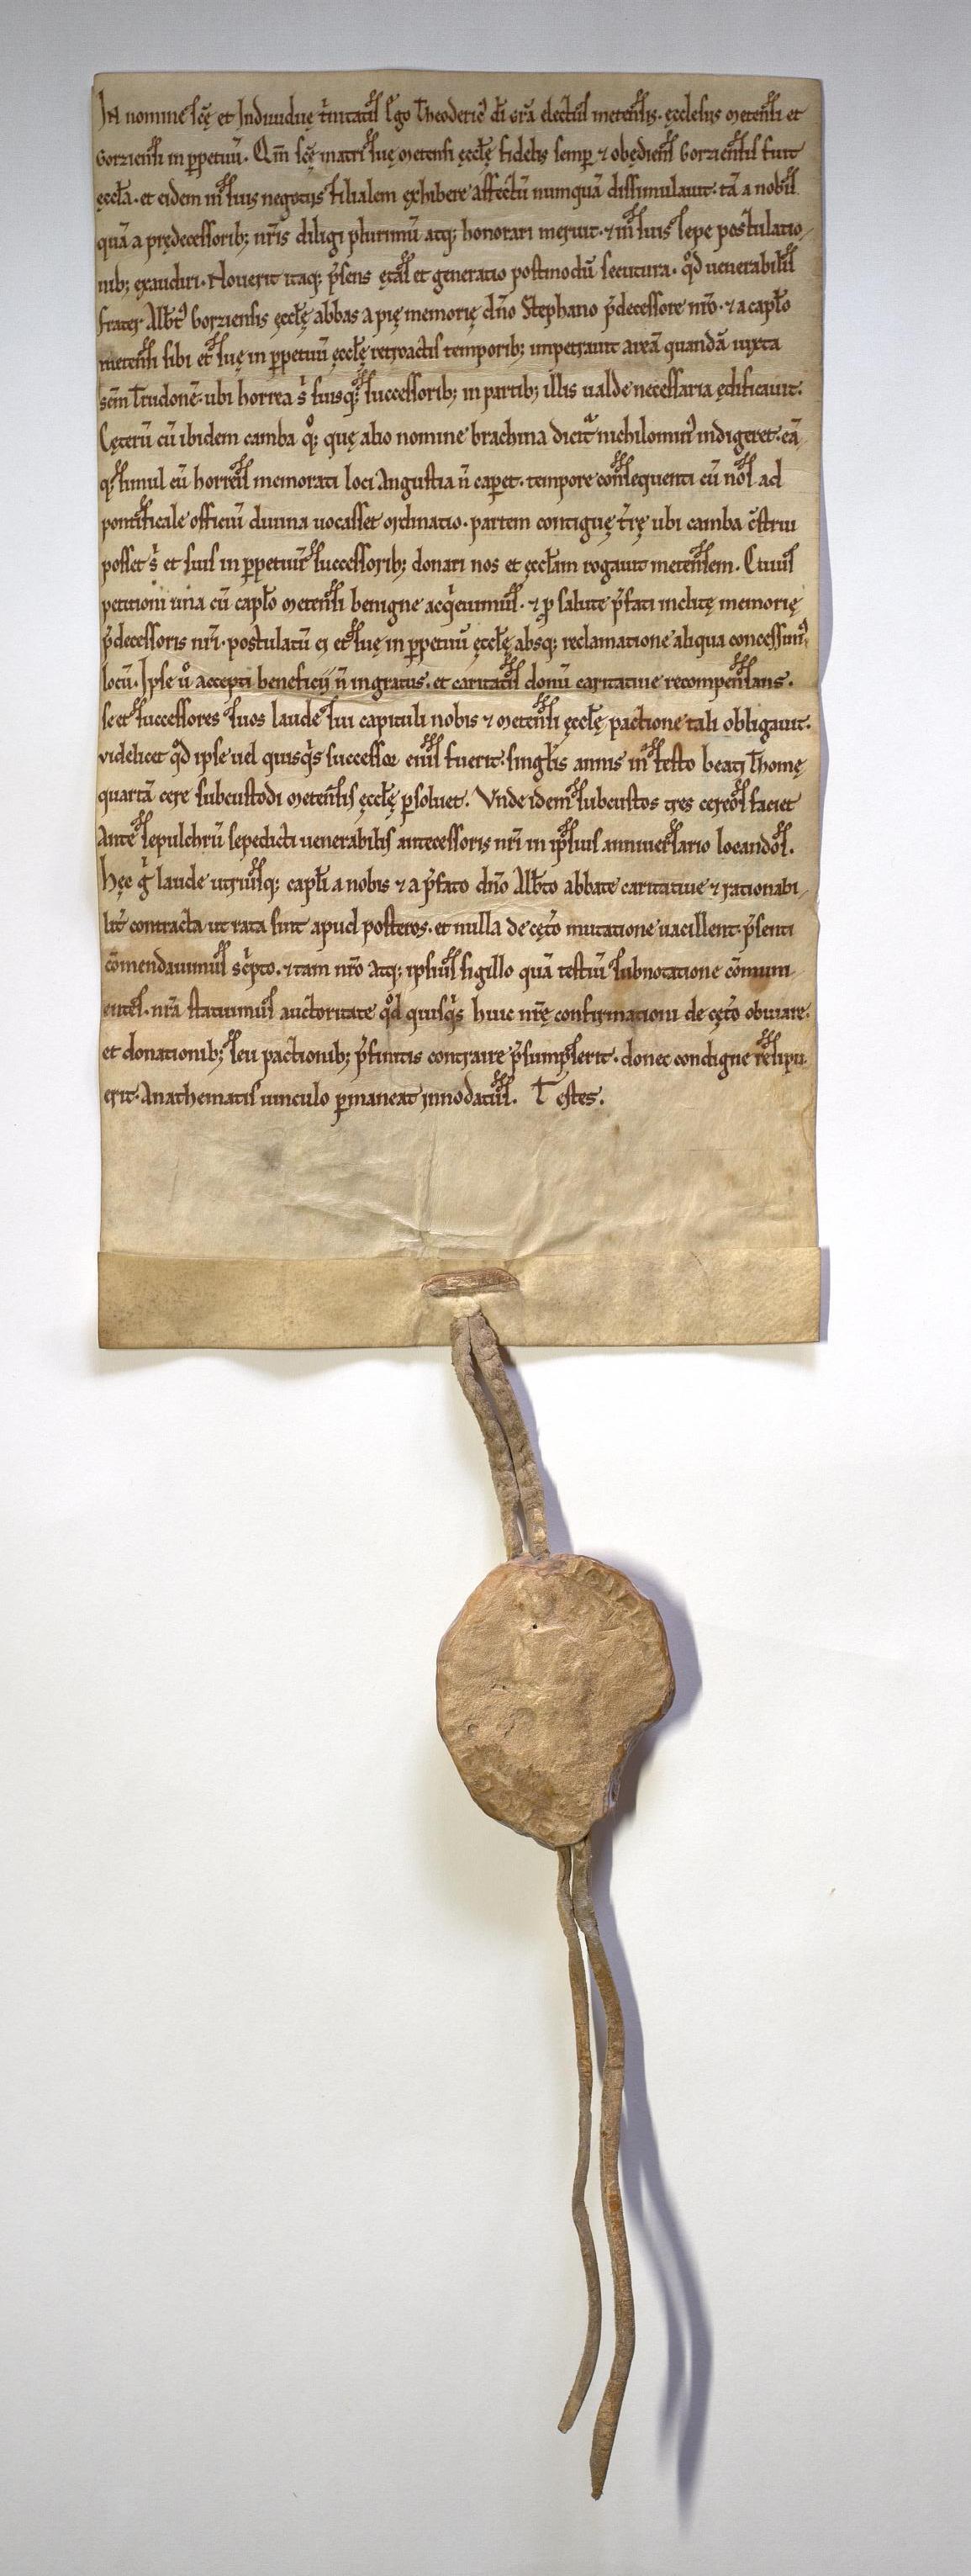 In nomine scę et Indiuiduę t̄nitatis Ego Theoderic᾿ dī gr̄a electus metensis. ęcclesiis metensi et
Gorziensi in ppetuū. Qm̄ scę matri suę metensi ęccłę fidelis semp & obędiens Gorziensis fuit
ęccła. et eidem in suis negociis filialem exhibere affectū numquā dissimulauit. tā a nobis
quā a prędecessorib; nr̄is diligi plurimū atq; honorari meruit. & in suis sepe postulatio-
nib; exaudiri. Nouerit itaq; p̄sens ętas et generatio postmodū secutura. qd̄ venerabilis
frater Alb̄t᾿ Gorziensis ęccłę abbas a pię memorię dn̄o Stephano p̄decessore nr̄o. & a capło
metensi sibi et suę in ppetuū ęccłę retroactis temporib; impetrauit areā quandā iuxta
scm̄ Trudonē. ubi horrea s̄ suisq; successorib; in partib; illis ualde necessaria ędificauit.
Cęterū cū ibidem camba qͦ; quę alio nomine brachina dicit᾿ nichilomin᾿ indigeret. eā
q; simul cū horreis memorati loci Angustia n̄ caperet. tempore consequenti cū nos ad
pontificale officiū diuina uocasset ordinatio. partem contiguę t̄rę ubi camba c̄strui
posset s̄ et suis in ppetuū successorib; donari nos et ęccłam rogauit metensem. Cuius
petitioni una cū capło metensi benigne acq̇euimus. & p salute p̄fati inclitę memorię
p̄decessoris nr̄i. postulatū ei et suę in ppetuū ęccłę absq; reclamatione aliqua concessim᾿
locū. Ipse ů accepti beneficii n̄ ingratus. et caritatis donū caritatiue recompensans.
se et successores suos laude sui capituli nobis & metensi ęccłę pactione tali obligauit.
videlicet qd̄ ipse uel quisq̇s successor eius fuerit. singłis annis in festo beati Thomę
quartā cere subcustodi metensis ęccłę psoluet. Vnde idem subcustos tres cereos faciet
Ante sepulchrū sepedicti venerabilis antecessoris nr̄i in ipsius anniuersario locandos.
Hęc g̊ laude utriusq; capłi a nobis & a p̄fato dn̄o Alb̄to abbate caritatiue & rationabi-
lit̄ contracta ut rata sint apud posteros. et nulla de cęt̄o mutatione uacillent. p̄senti
cōmendauimus sc̊pto. & tam nr̄o atq; ipsius sigillo quā testiū subnotatione cōmuni-
entes. nr̄a statuimus auctoritate qd̄ quisq̇s huic nr̄ę confirmationi de cęt̄o obuiare.
et donationib; seu pactionib; p̄finitis contraire p̄sumpserit. donec condigne resipu-
erit. Anathematis uinculo pmaneat innodatus. Testes.